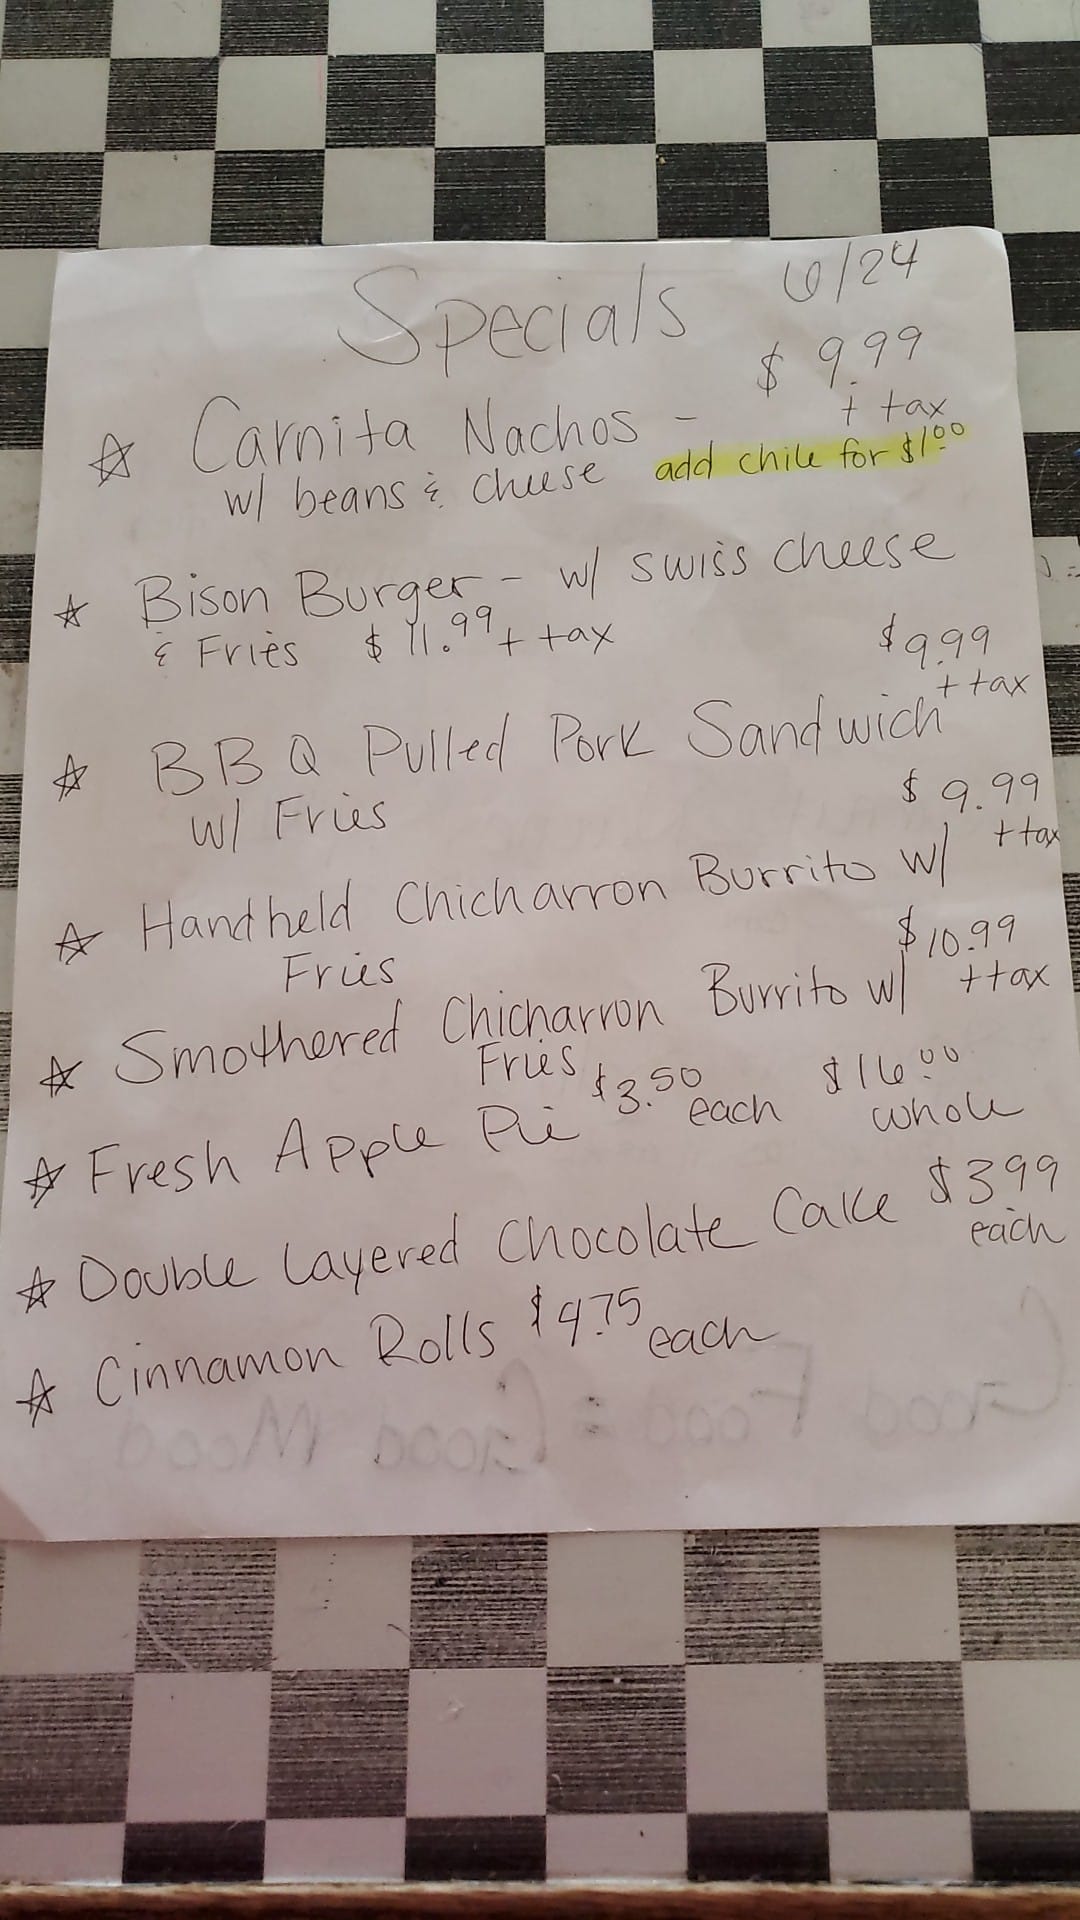 Specials 6/24
$ 9.99
+ tax
☆ Carnita Nachos -
w/ beans & cheese add chile for $1.00
☆ Bison Burger - w/ swiss cheese
& Fries $ 11.99 + tax
$9.99
+ tax
☆ BBQ Pulled Pork Sandwich
w/ Fries
$ 9.99
+ tax
☆ Handheld Chicharron Burrito w/
Fries
$10.99
+ tax
☆ Smothered Chicharron Burrito w/
Fries
☆ Fresh Apple Pie $3.50 each $16.00 whole
☆ Double Layered Chocolate Cake $3.99
each
☆ Cinnamon Rolls $4.75 each
Good Food = Good Mood